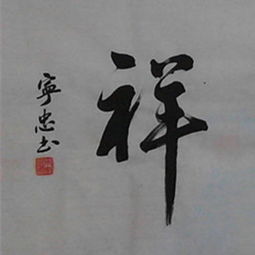 祥
寧忠书